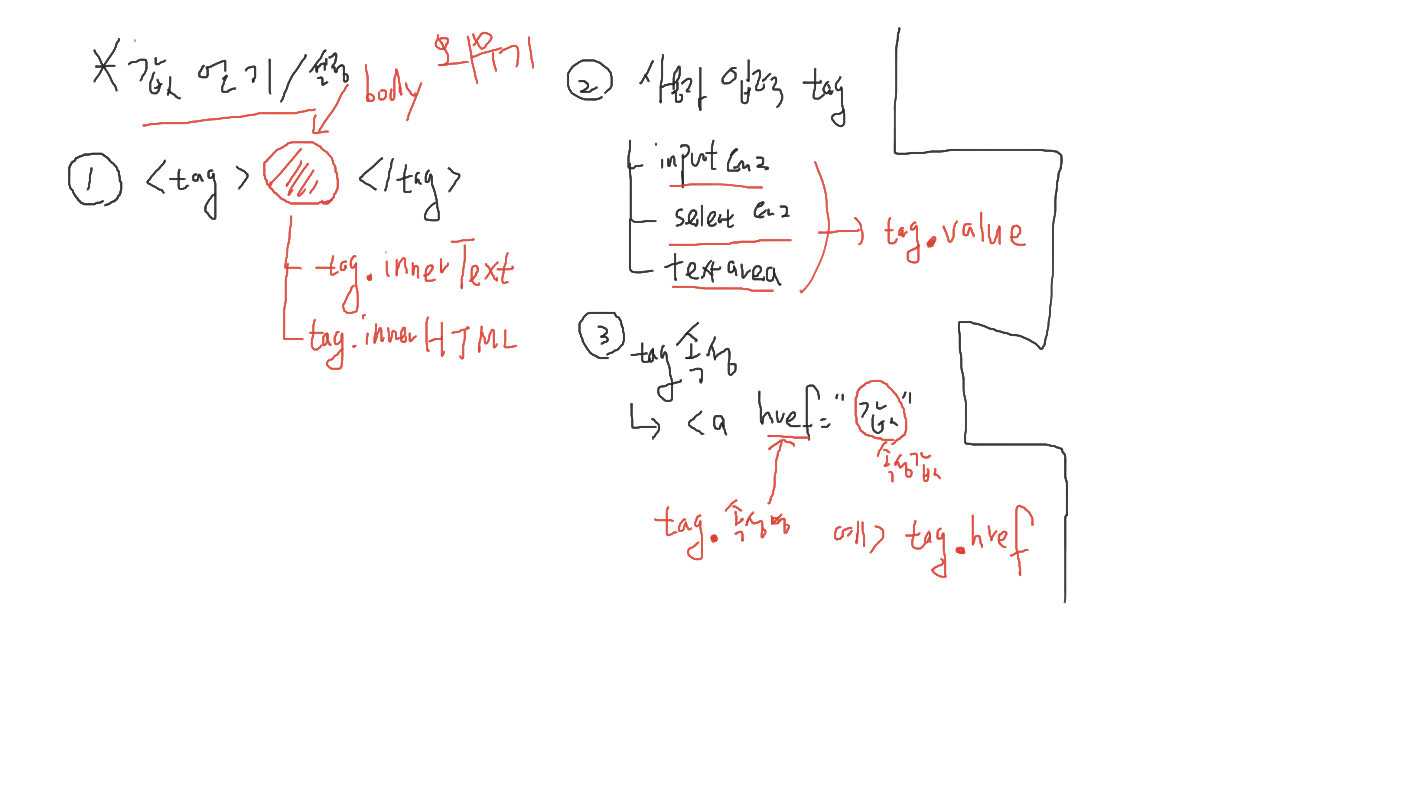 * 값 얻기/설정
body
외우기
① <tag> </tag>
tag.innerText
tag.innerHTML
② 사용자 입력 tag
input
select
textarea
tag.value
③ tag 속성
↳ <a href="값"
속성값
tag.속성명
예) tag.href